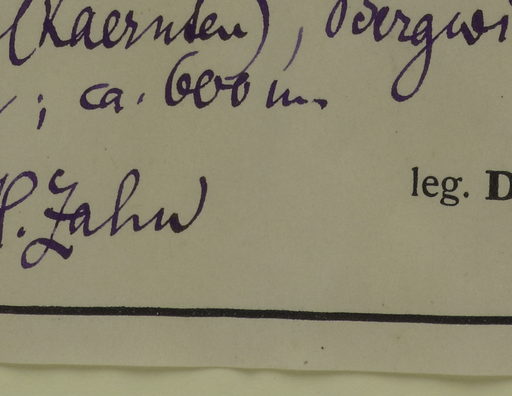 (Kaernten), Bergwi
; ca. 600 m.
H. Zahn
leg. D